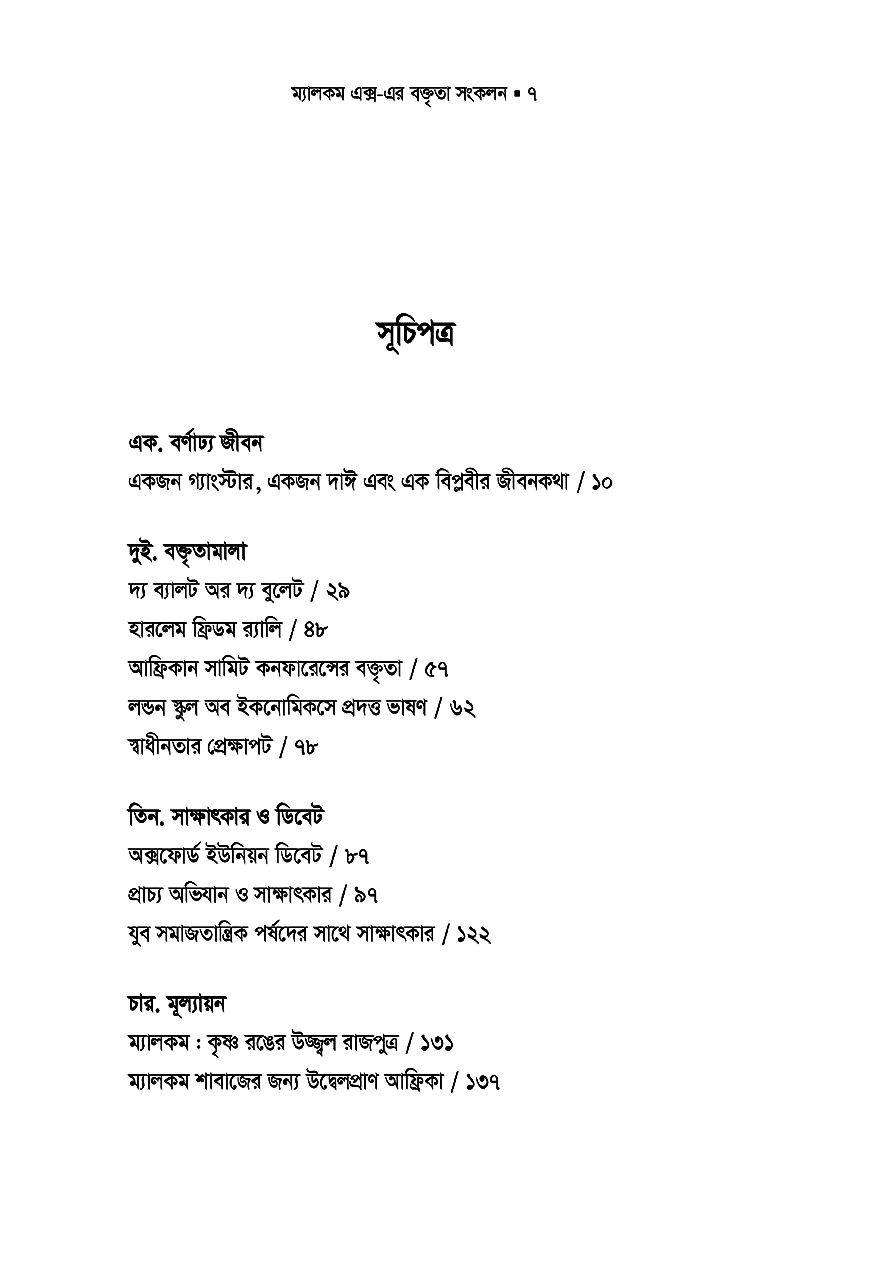 ম্যালকম এক্স-এর বক্তৃতা সংকলন ▪ ৭
সূচিপত্র
এক. বর্ণাঢ্য জীবন
একজন গ্যাংস্টার, একজন দাঈ এবং এক বিপ্লবীর জীবনকথা / ১০
দুই. বক্তৃতামালা
দ্য ব্যালট অর দ্য বুলেট / ২৯
হারলেম ফ্রিডম র‍্যালি / ৪৮
আফ্রিকান সামিট কনফারেন্সের বক্তৃতা / ৫৭
লন্ডন স্কুল অব ইকনোমিকসে প্রদত্ত ভাষণ / ৬২
স্বাধীনতার প্রেক্ষাপট / ৭৮
তিন. সাক্ষাৎকার ও ডিবেট
অক্সফোর্ড ইউনিয়ন ডিবেট / ৮৭
প্রাচ্য অভিযান ও সাক্ষাৎকার / ৯৭
যুব সমাজতান্ত্রিক পর্ষদের সাথে সাক্ষাৎকার / ১২২
চার. মূল্যায়ন
ম্যালকম : কৃষ্ণ রঙের উজ্জ্বল রাজপুত্র / ১৩১
ম্যালকম শাবাজের জন্য উদ্বেলপ্রাণ আফ্রিকা / ১৩৭